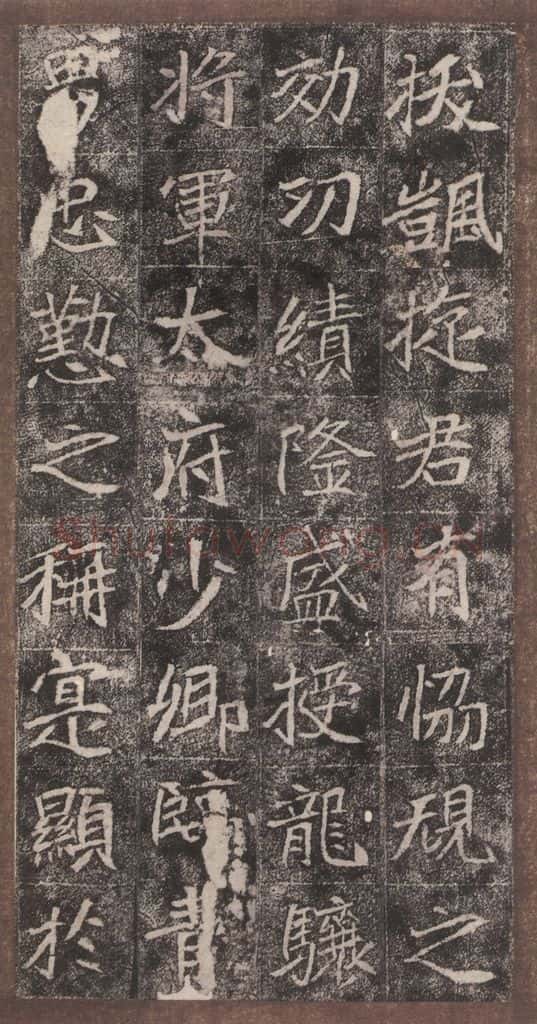 颽旋君有恊規之
効功績隆盛授龍驤
將軍太府少卿臨
忠懃之稱寔顯於
Shufawang.CN